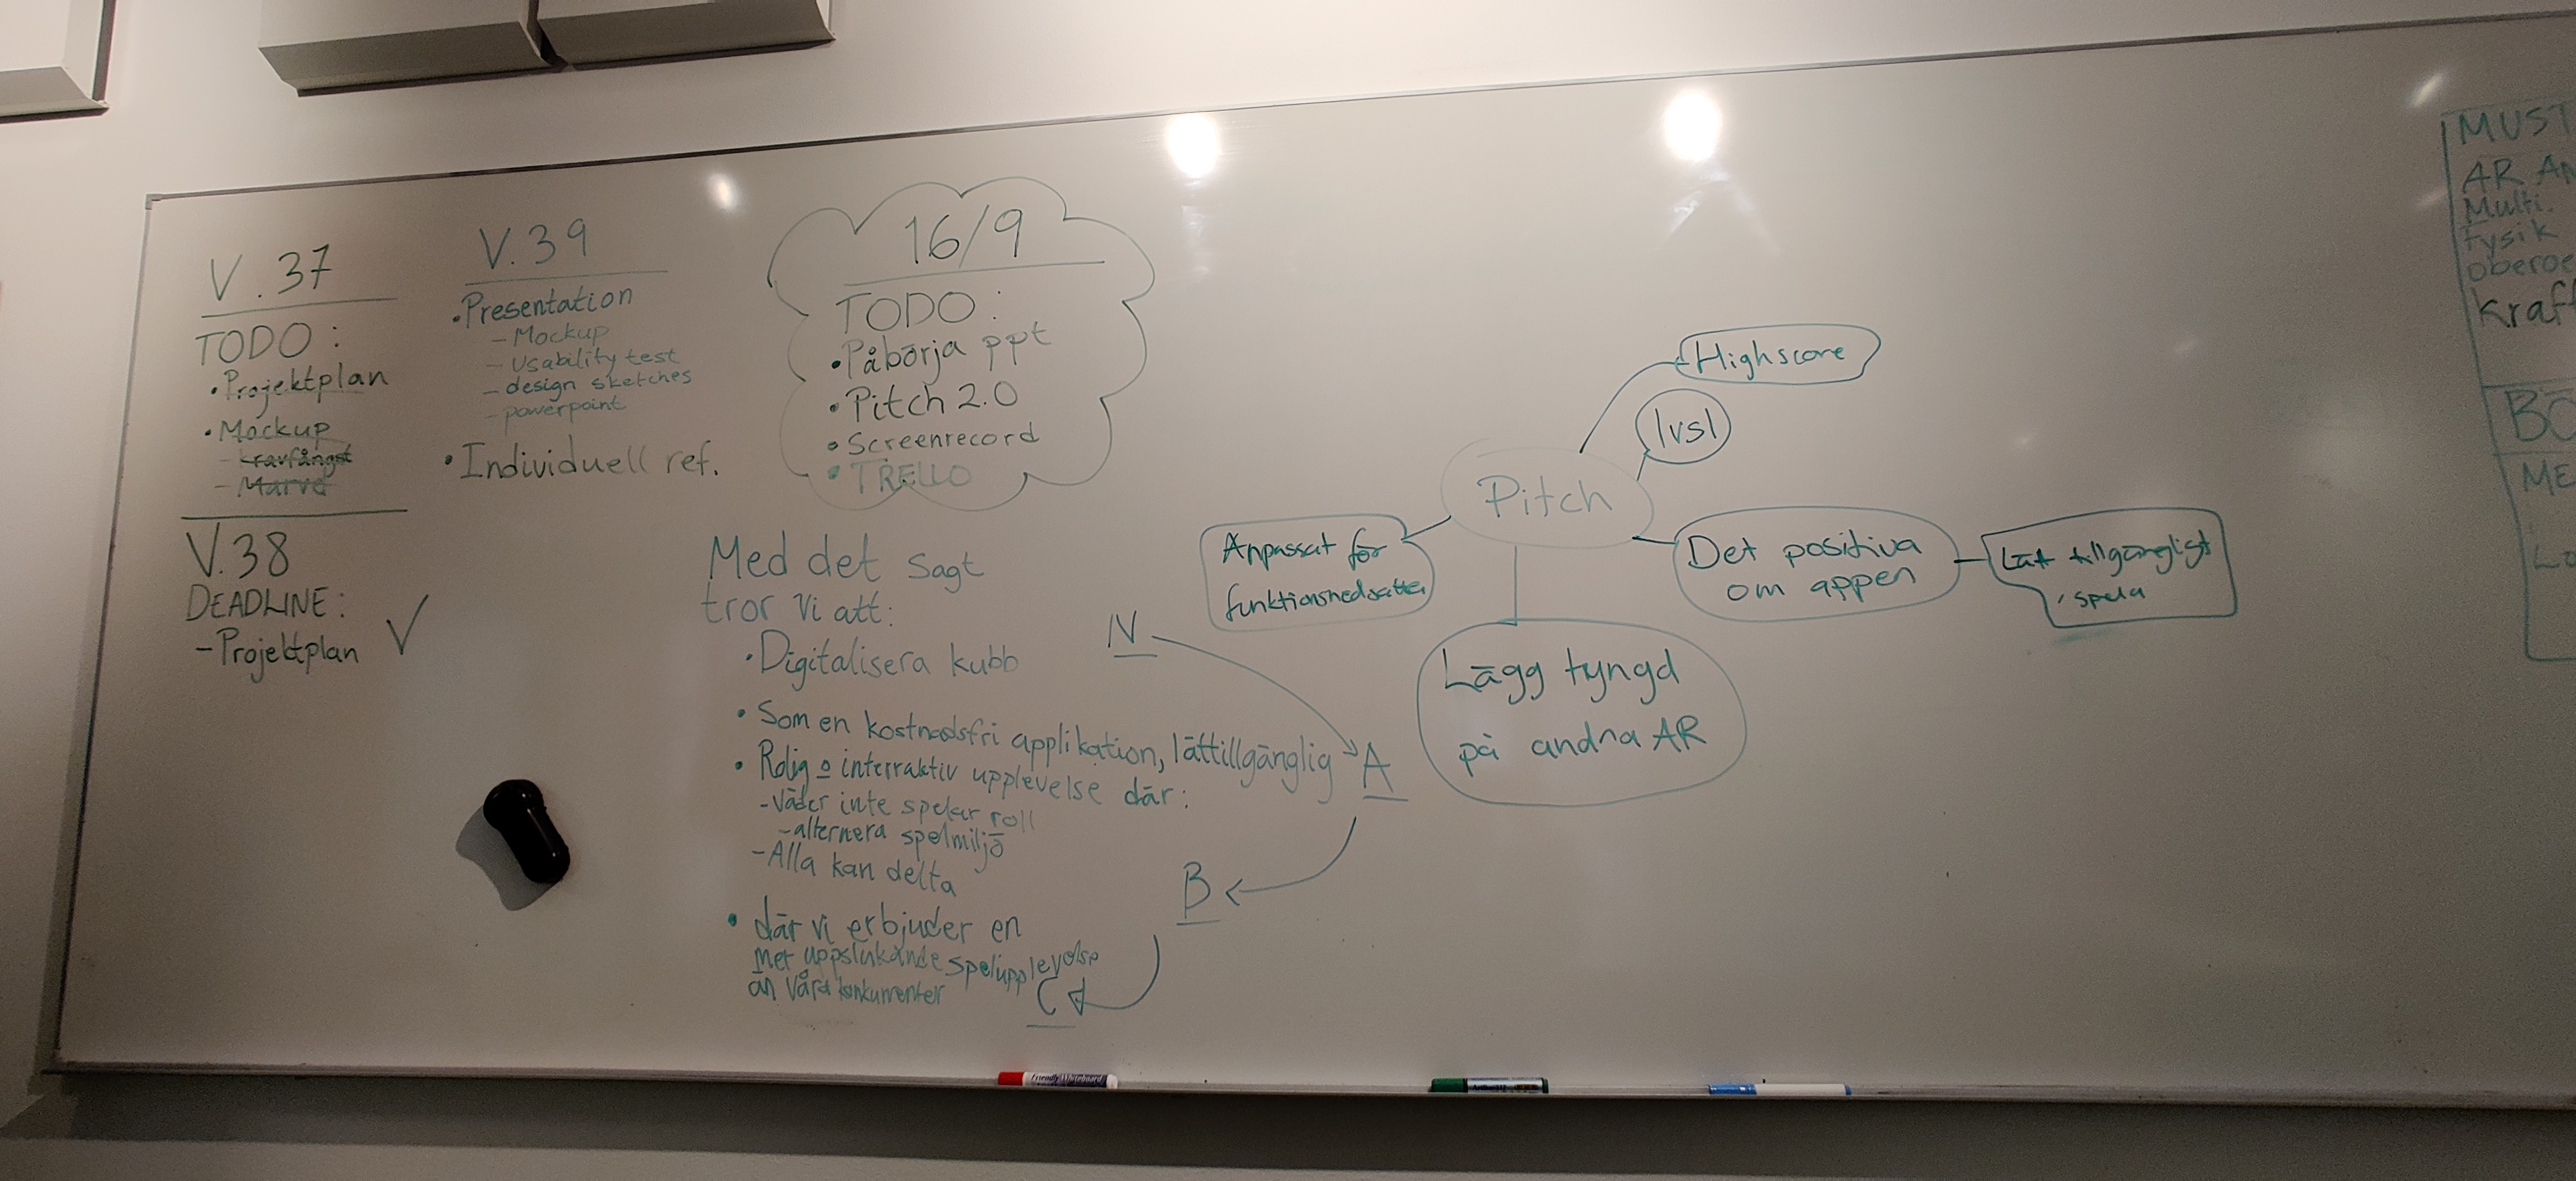 V.37
TODO:
• Projektplan
• Mockup
- kravfångst
- Marvel
V.38
DEADLINE:
- Projektplan ✓
V.39
• Presentation
- Mockup
- Usability test
- design sketches
- powerpoint
• Individuell ref.
16/9
TODO:
• Påbörja ppt
• Pitch 2.0
• Screenrecord
• TRELLO
Med det sagt
tror vi att:
• Digitalisera kubb
• Som en kostnadsfri applikation, lättillgänglig
• Rolig o interraktiv upplevelse där:
- Väder inte spelar roll
- alternera spelmiljö
- Alla kan delta
• där vi erbjuder en
mer uppslukande spelupplevelse
än våra
N
A
B
C
Pitch
Highscore
1vs1
Anpassat för
Det positiva
om appen
tillgängligt
spela
Lägg tyngd
på andra AR
MUST
AR AN
Multi.
fysik
oberoe
kraft
BÖ
ME